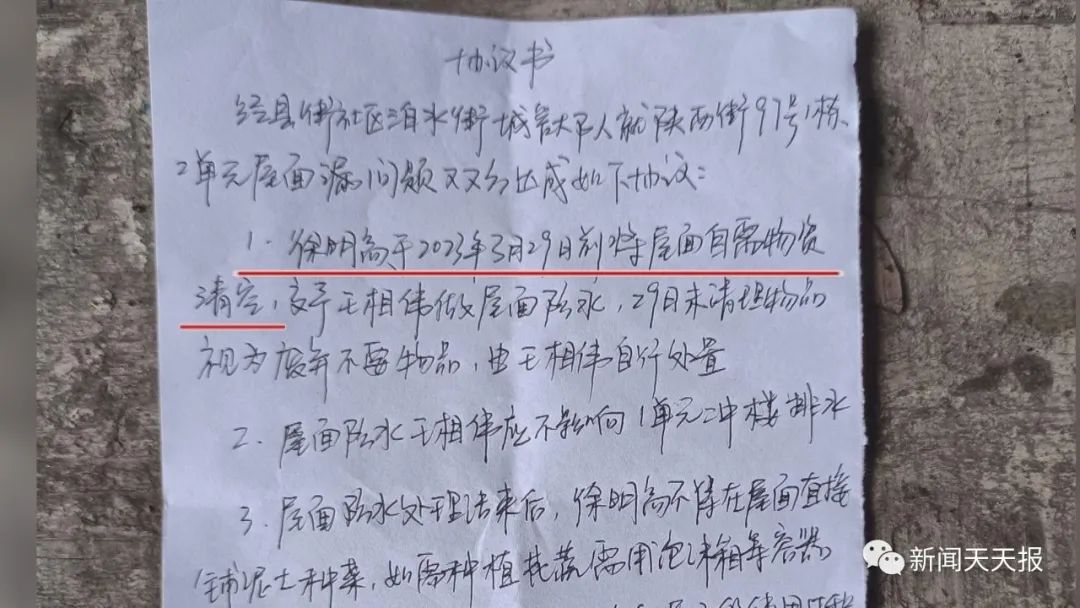 协议书
经县街社区泊水街城管大队人就陕西街97号1栋、
2单元屋面漏问题双方达成如下协议：
1. 徐明高于2023年3月29日前将屋面自需物资
清空，交予王相伟做屋面防水，29日未清理物品
视为废弃不要物品，由王相伟自行处置
2. 屋面防水王相伟应不影响1单元二中楼排水
3. 屋面防水处理结束后，徐明高不得在屋面直接
铺泥土种菜，如需种植花蔬需用泡沫箱等容器
新闻天天报